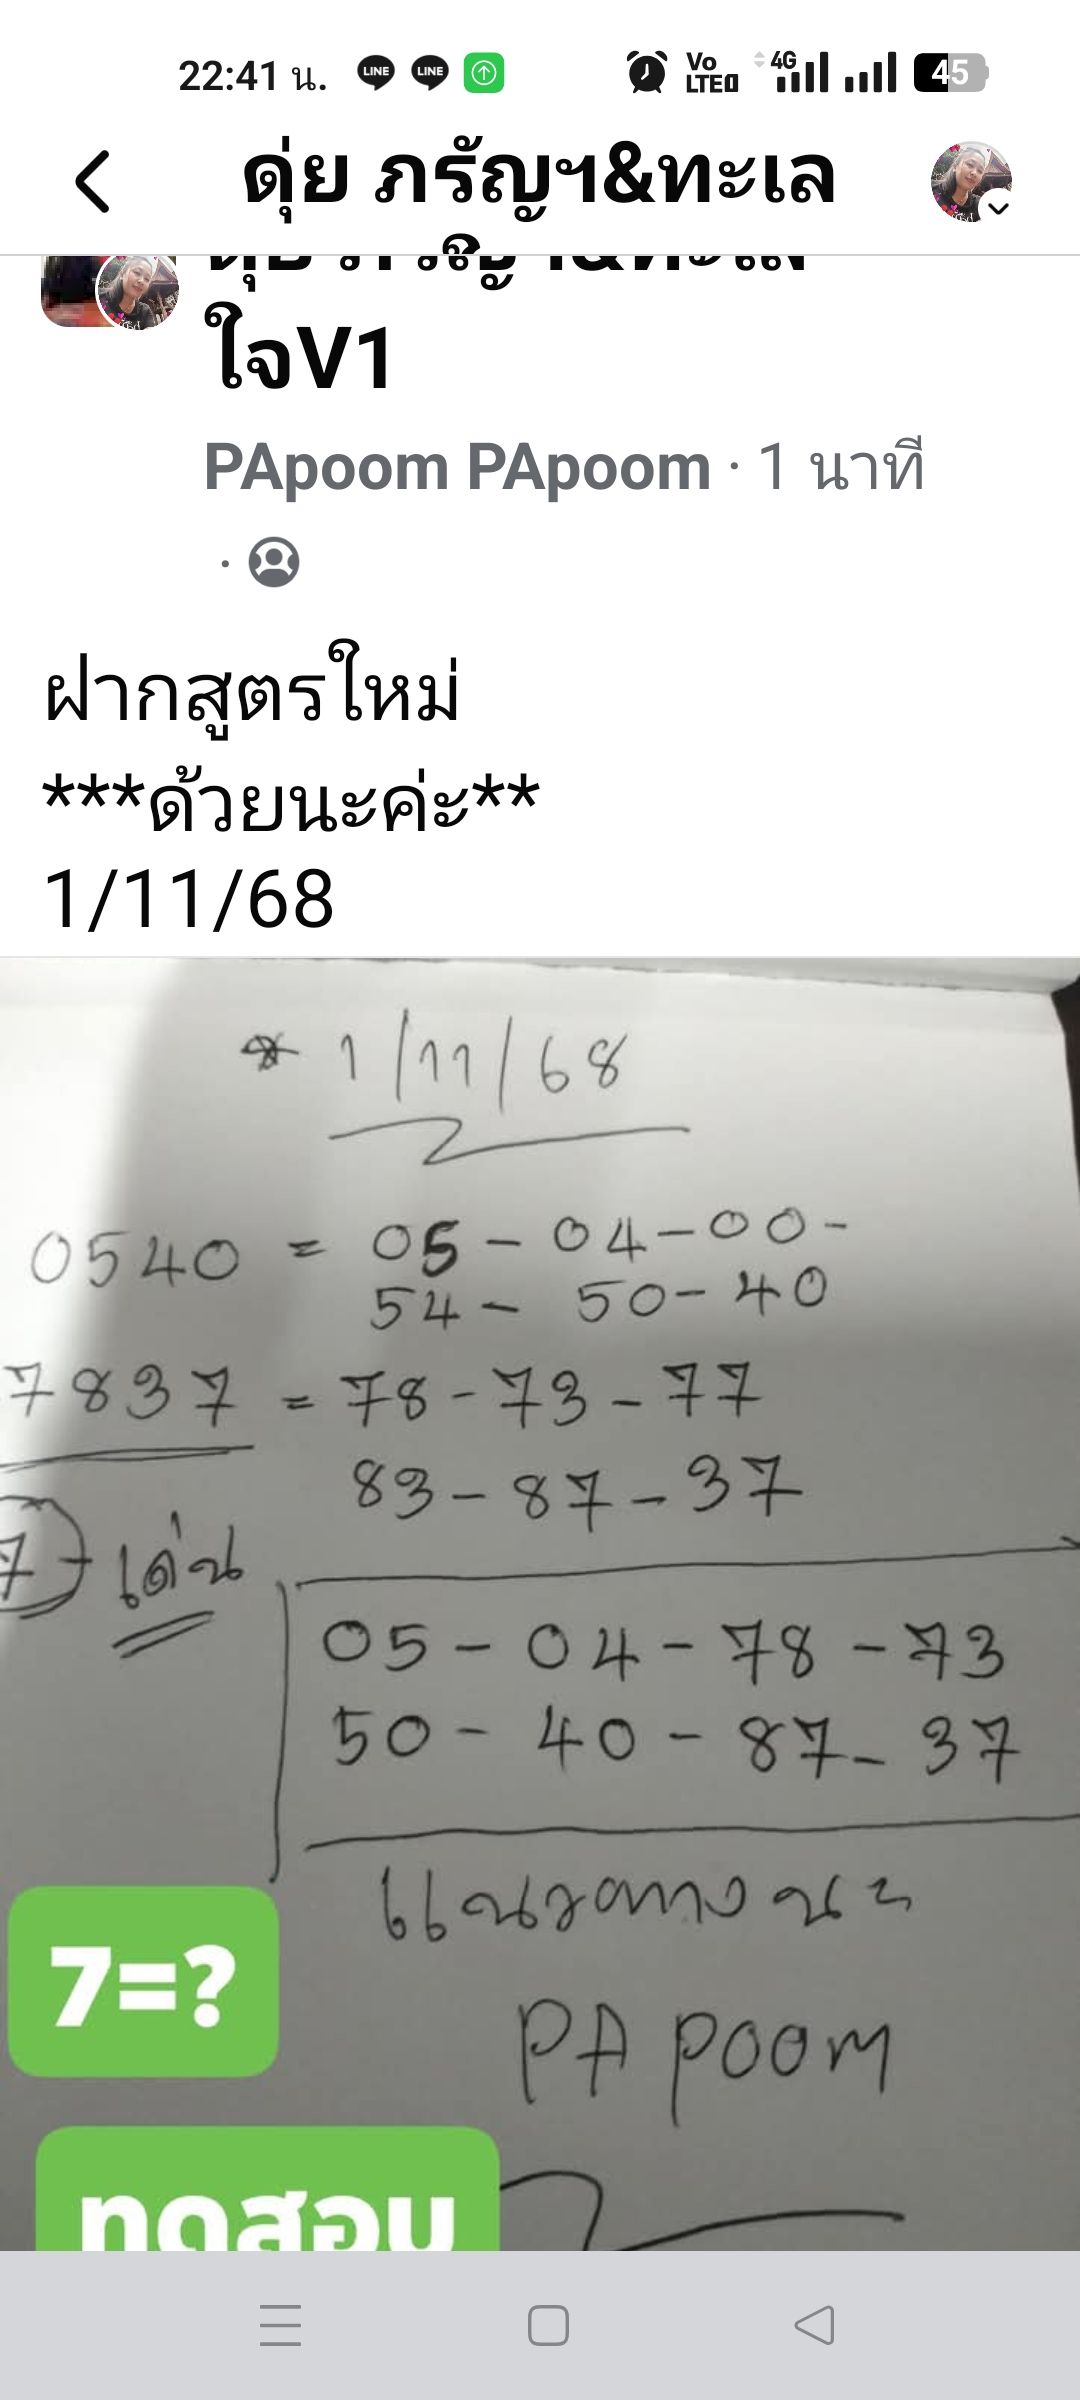 22:41 น. LINE LINE Vo LTE 4G 45
ดุ่ย ภรัญฯ&ทะเล
ใจV1
PApoom PApoom · 1 นาที
·
ฝากสูตรใหม่
***ด้วยนะค่ะ**
1/11/68
* 1/11/68
0540 = 05 - 04 - 00 -
54 - 50 - 40
7837 = 78 - 73 - 77
83 - 87 - 37
7 - เด่น
05 - 04 - 78 - 73
50 - 40 - 87 - 37
แนวทาง
7=?
PA POOM
ทดสอบ